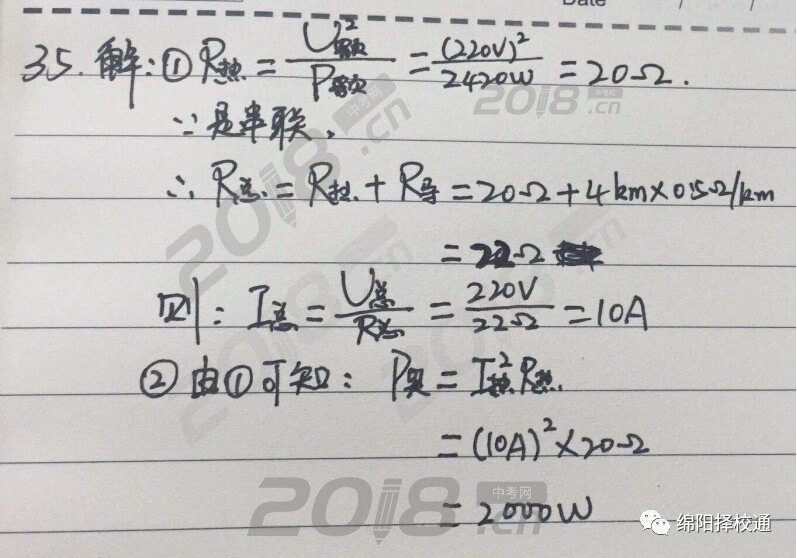 Date / /
35. 解：① R热 = U额² / P额 = (220V)² / 2420W = 20Ω.
∵是串联，
∴ R总 = R热 + R导 = 20Ω + 4km×0.5Ω/km
= 22Ω
则：I总 = U总 / R总 = 220V / 22Ω = 10A
② 由①可知：P实 = I热² R热
= (10A)² × 20Ω
= 2000W
2018.cn
中考网
绵阳择校通